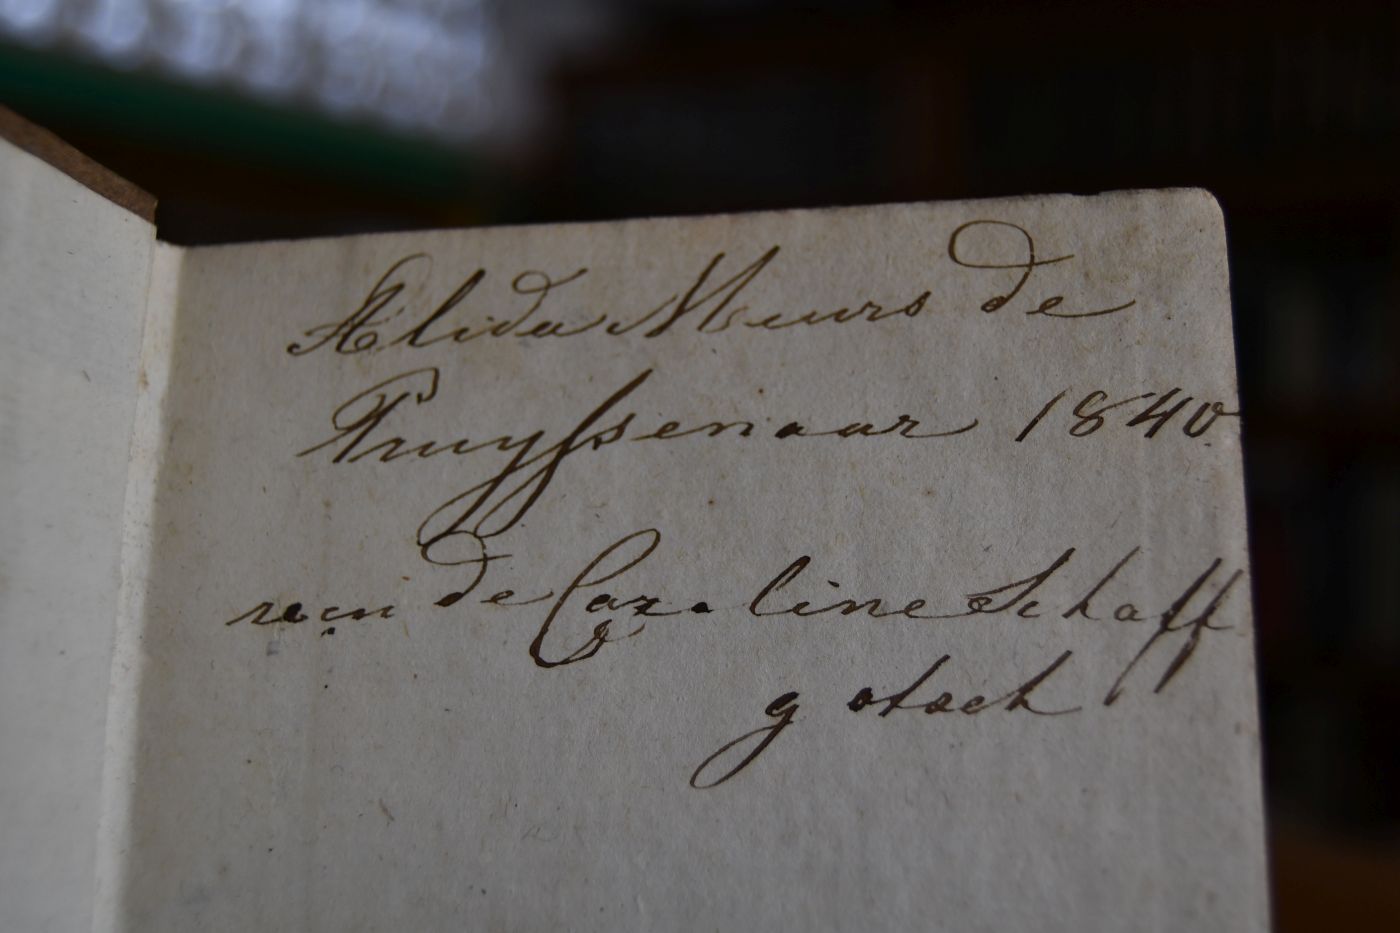 Alida Meurs de
Pruyssenaar 1840.
van de Caroline Schaff
gotsch